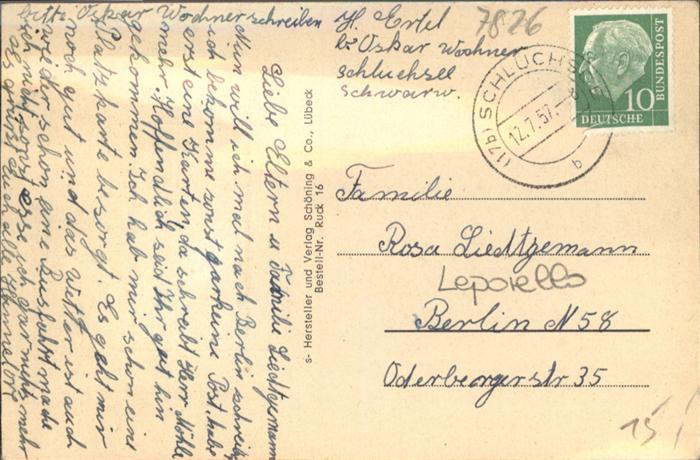 bitte Oskar Wochner schreiben
H. Ertel
bei Oskar Wochner
Schluchsee
Schwarzw.
7826
(17b) SCHLUCHSEE
12.7.57.
b
10
DEUTSCHE BUNDESPOST
Familie
Rosa Liedtgemann
Leporello
Berlin N 58
Oderbergerstr 35
15
s- Hersteller und Verlag Schöning & Co., Lübeck
Bestell-Nr. Ruck 16
Liebe Eltern u Familie Liedtgemann
Nun will ich mal nach Berlin schreiben
ich bekomme sonst garkeine Post. habe
erst eine Karten, da schreibt Herr Möhle
mehr. Hoffendlich seid Ihr gut hin
gekommen. Ich hab mir schon eine
Platzkarte besorgt. Es geht mir
noch gut und das Wetter ist auch
wieder schön eine Ausfahrt mache
ich nicht sonst esse ich gar nichts mehr
es grüßt Euch alle Hannelore